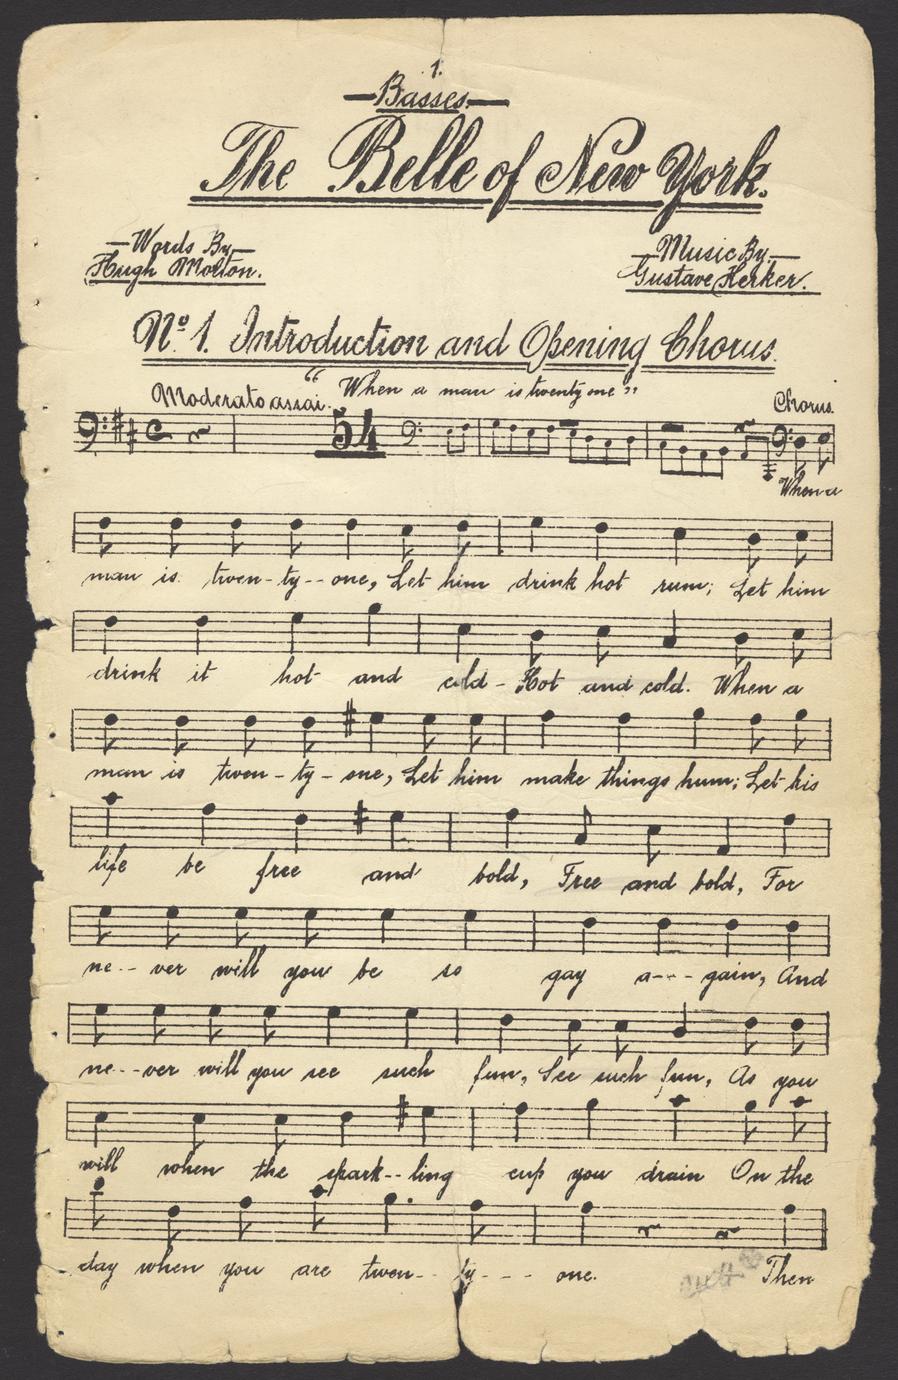 1.
Basses.
The Belle of New York.
Words By
Hugh Molton.
Music By
Gustave Herker.
No. 1. Introduction and Opening Chorus.
“When a man is twenty one”
Moderato assai.
Chorus.
54
When a
man is twen-ty--one, Let him drink hot rum; Let him
drink it hot and cold - Hot and cold. When a
man is twen-ty-one, Let him make things hum; Let his
life be free and bold, Free and bold, For
ne--ver will you be so gay a---gain, And
ne---ver will you see such fun, See such fun, As you
will when the spark--ling cup you drain On the
day when you are twen--ty--- one. Then